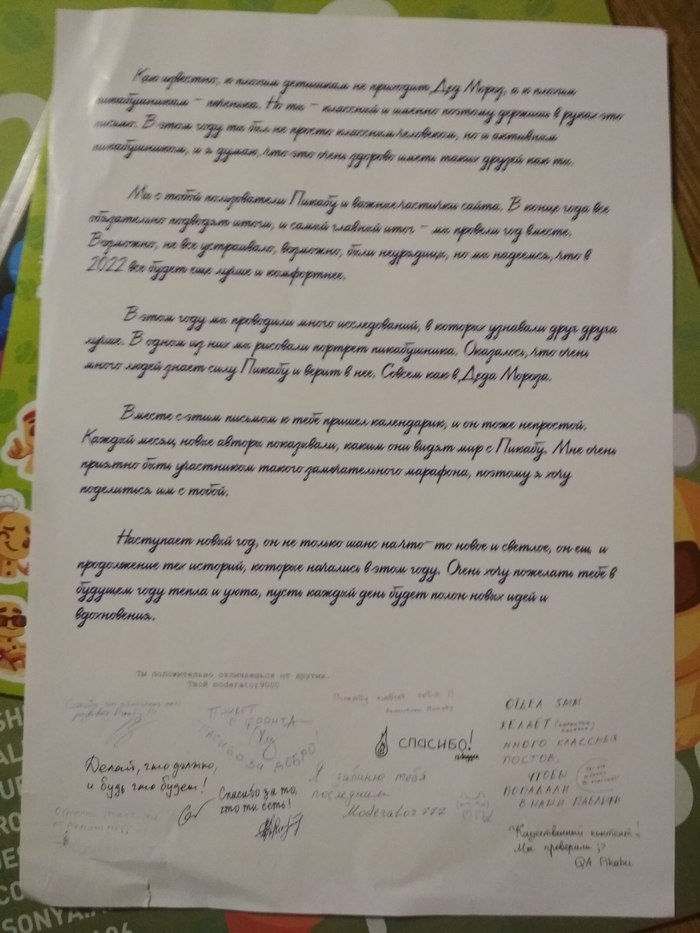 Как известно, к плохим детишкам не приходит Дед Мороз, а к плохим
пикабушникам – печенька. Но ты – классный и именно поэтому держишь в руках это
письмо. В этом году ты был не просто классным человеком, но и активным
пикабушником, и я думаю, что это очень здорово иметь таких друзей как ты.
Мы с тобой пользователи Пикабу и важные частички сайта. В конце года все
обязательно подводят итоги, и самый главный итог – мы провели год вместе.
Возможно, не все устраивало, возможно, были неурядицы, но мы надеемся, что в
2022 все будет еще лучше и комфортнее.
В этом году мы проводили много исследований, в которых узнавали друг друга
лучше. В одном из них мы рисовали портрет пикабушника. Оказалось, что очень
много людей знает силу Пикабу и верит в нее. Совсем как в Деда Мороза.
Вместе с этим письмом к тебе пришел календарик, и он тоже непростой.
Каждый месяц новые авторы показывали, каким они видят мир с Пикабу. Мне очень
приятно быть участником такого замечательного марафона, поэтому я хочу
поделиться им с тобой.
Наступает новый год, он не только шанс на что-то новое и светлое, он ещ и
продолжение тех историй, которые начались в этом году. Очень хочу пожелать тебе в
будущем году тепла и уюта, пусть каждый день будет полон новых идей и
вдохновения.
Ты положительно отличаешься от других.
Твой moderator9000
ПРИВЕТ
С ФРОНТА
СПАСИБО ЗА ДОБРО!
СПАСИБО!
ОТДЕЛ SMM
ЖЕЛАЕТ
МНОГО КЛАССНЫХ
ПОСТОВ,
ЧТОБЫ
ПОПАДАЛИ
В НАШИ ПАБЛИКИ
Делай, что должно,
и будь что будет!
Спасибо за то,
что ты есть!
Я забаню тебя
последним
Moderator 777
Качественный контент!
Мы проверили
QA Pikabu
SONYA